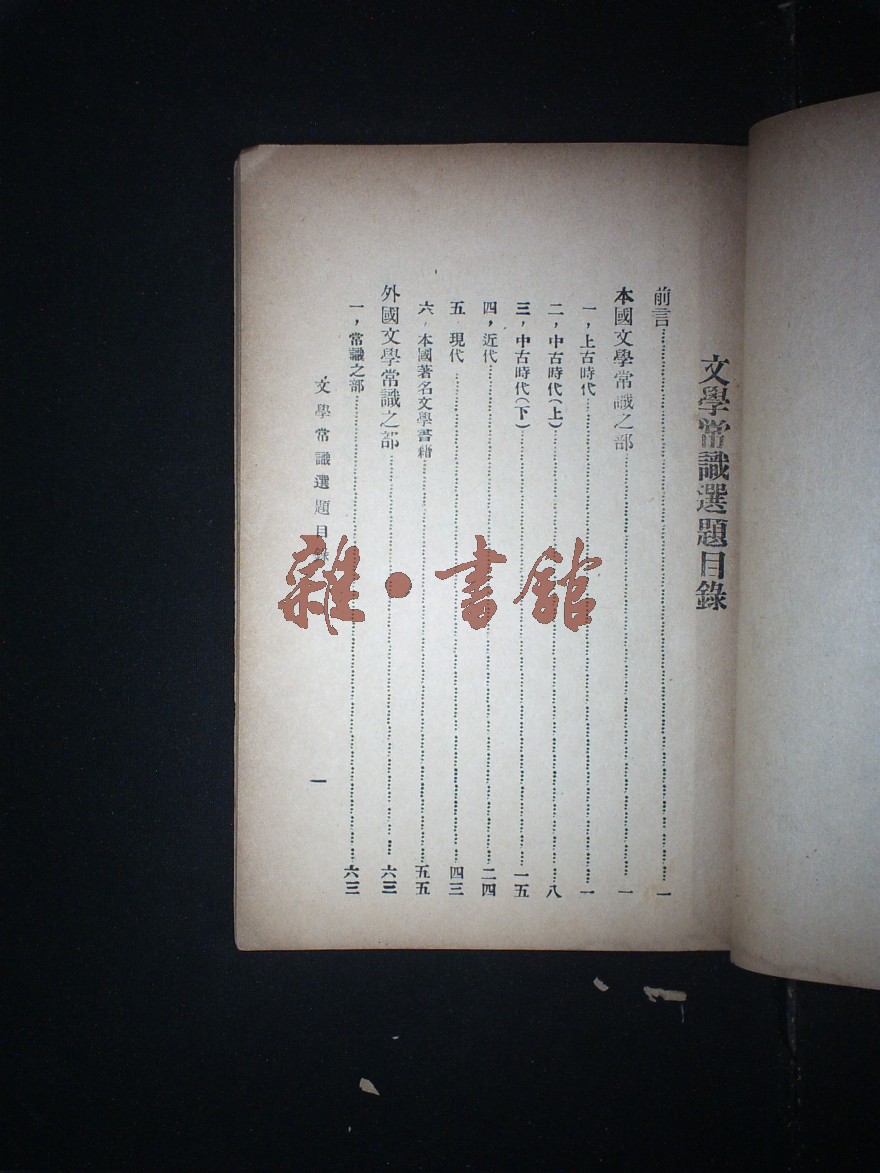 文學常識選題目錄
前言……一
本國文學常識之部……一
一，上古時代……一
二，中古時代（上）……八
三，中古時代（下）……一五
四，近代……二四
五 現代……四三
六，本國著名文學書籍……五五
外國文學常識之部……六三
一，常識之部……六三
文學常識選題目錄
一
雜·書館